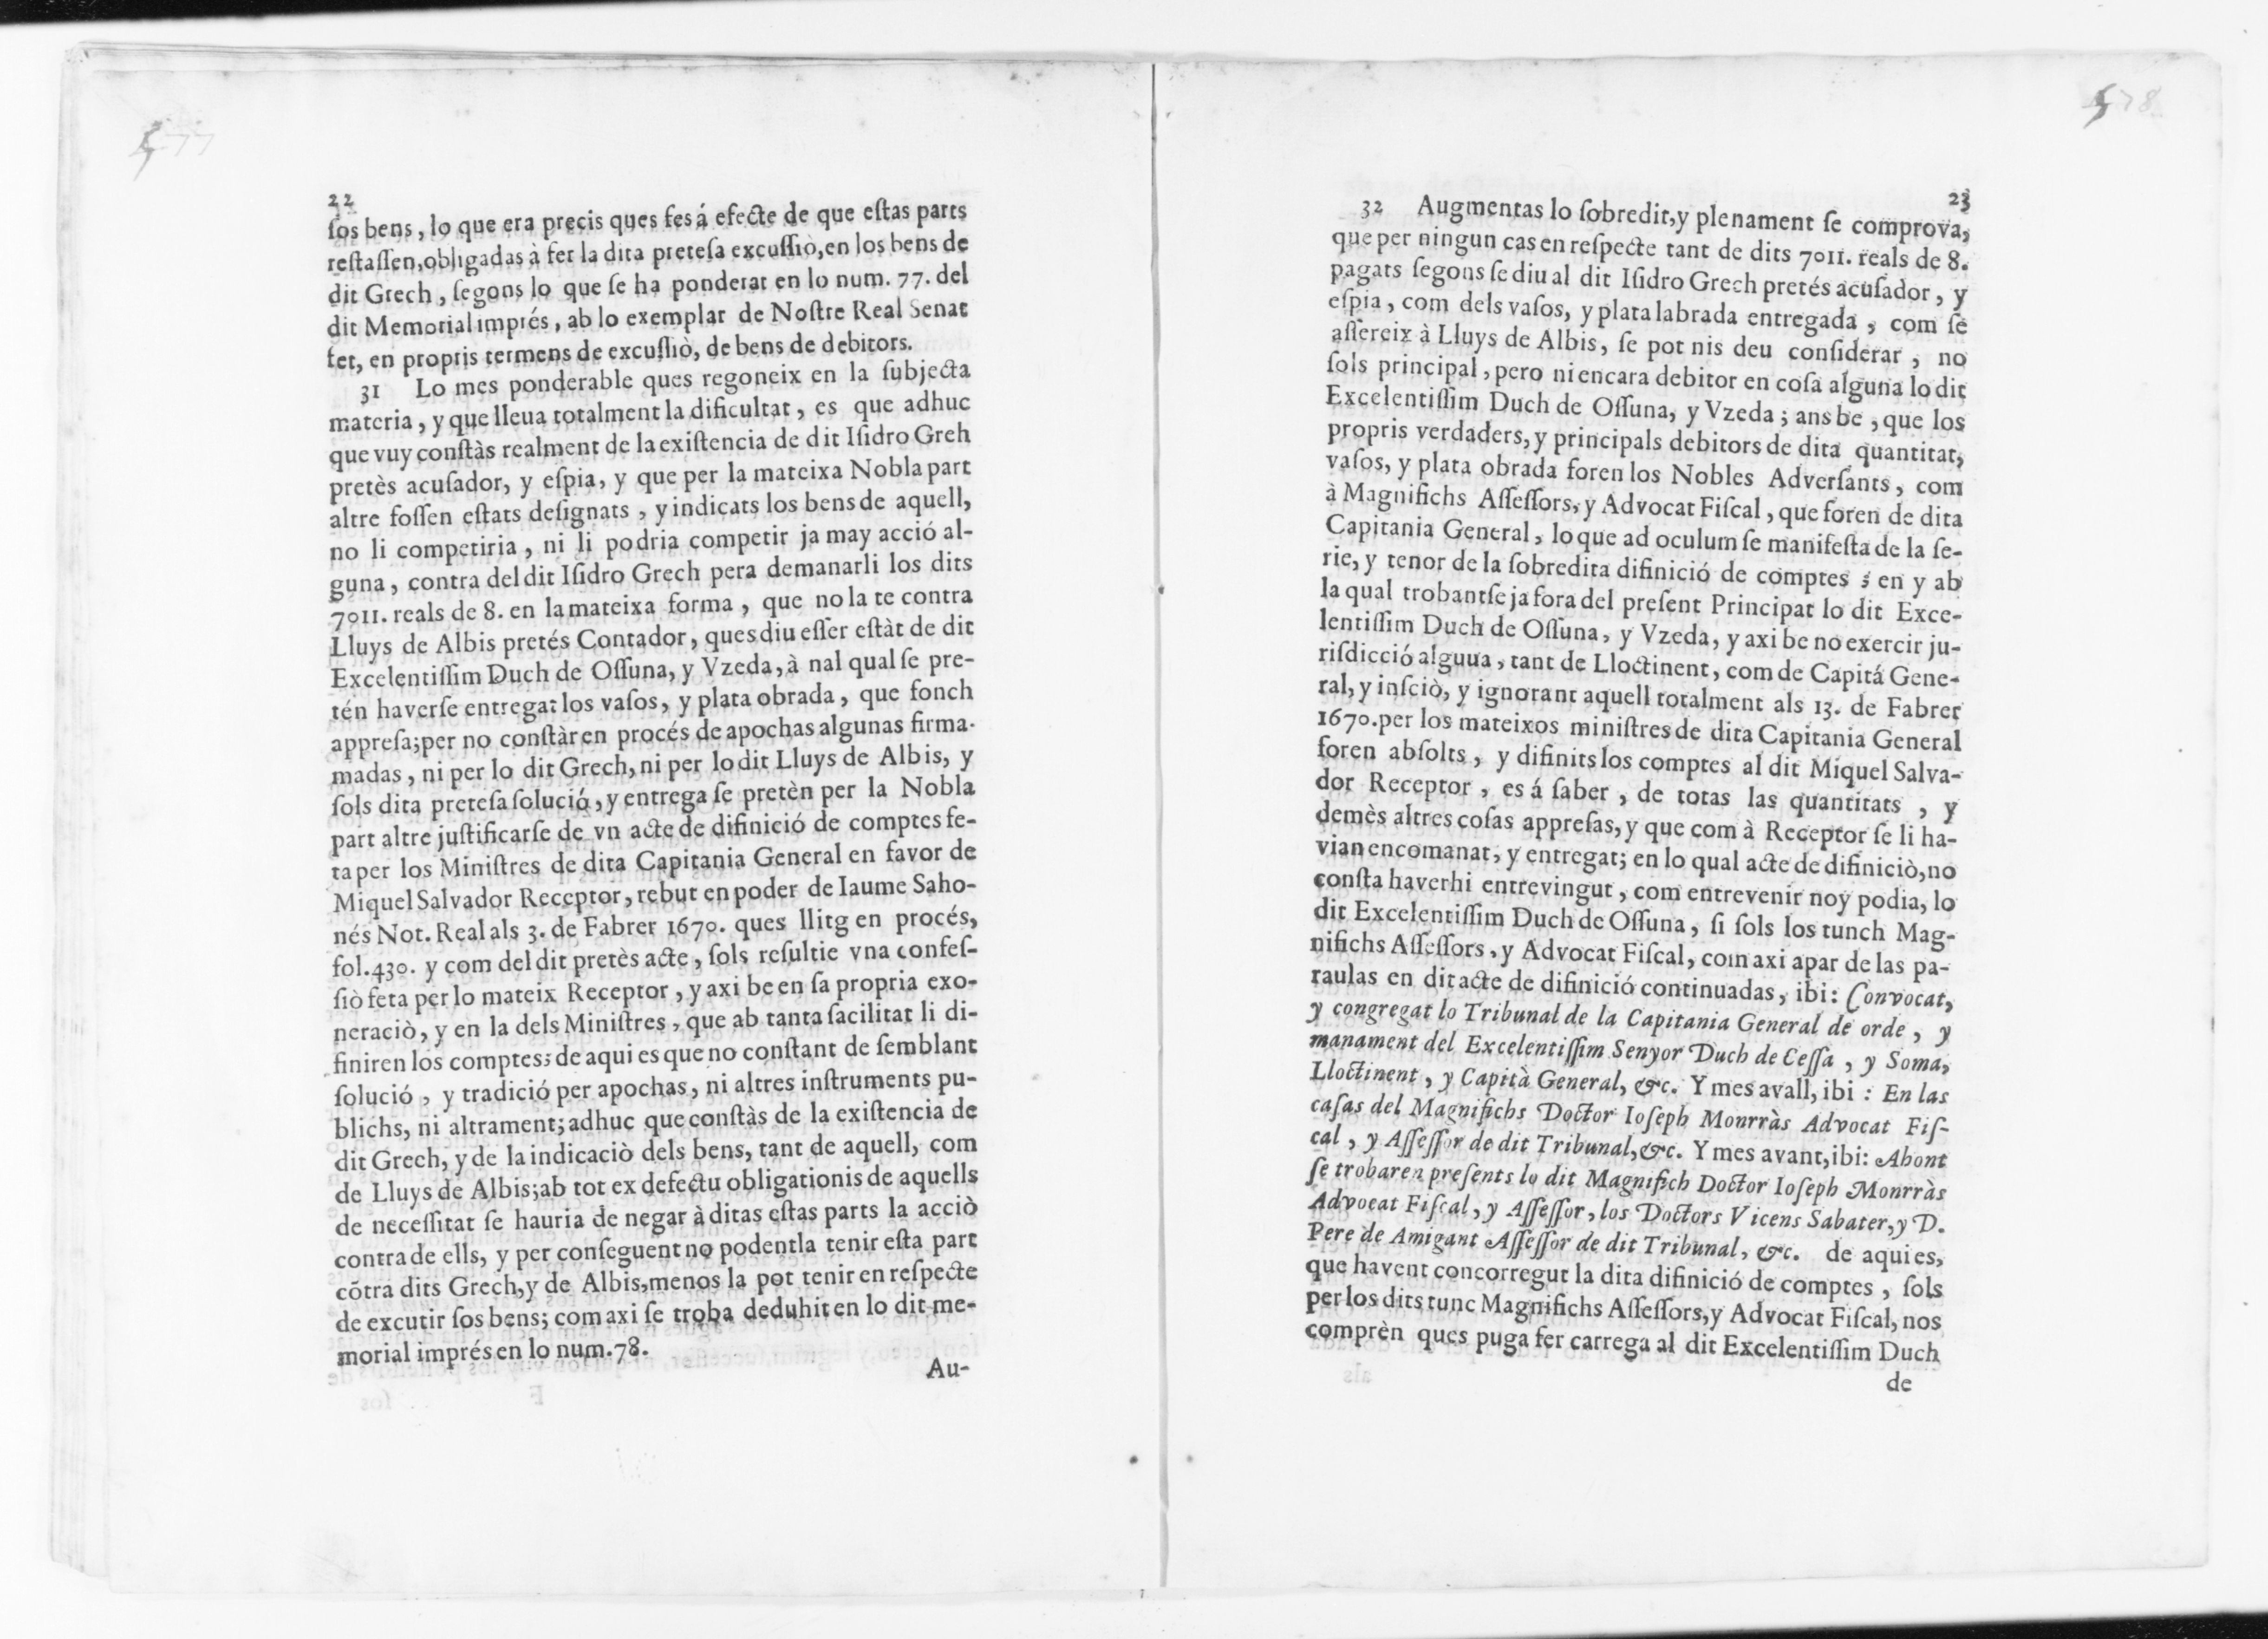 577
22
ſos bens, lo que era precis ques fes á efecte de que eſtas parts
reſtaſſen, obligadas à fer la dita preteſa excuſſiò, en los bens de
dit Grech, ſegons lo que ſe ha ponderat en lo num. 77. del
dit Memorial imprés, ab lo exemplar de Noſtre Real Senat
fet, en propris termens de excuſſiò, de bens de dèbitors.
31 Lo mes ponderable ques regoneix en la ſubjecta
materia, y que lleua totalment la dificultat, es que adhuc
que vuy conſtàs realment de la exiſtencia de dit Iſidro Greh
pretès acuſador, y eſpia, y que per la mateixa Nobla part
altre foſſen eſtats deſignats, y indicats los bens de aquell,
no li competiria, ni li podria competir ja may acció al-
guna, contra del dit Iſidro Grech pera demanarli los dits
7011. reals de 8. en la mateixa forma, que no la te contra
Lluys de Albis pretés Contador, ques diu eſſer eſtàt de dit
Excelentiſſim Duch de Oſſuna, y Vzeda, à nal qual ſe pre-
tén haverſe entregat los vaſos, y plata obrada, que fonch
appreſa; per no conſtàr en procés de apochas algunas firma-
madas, ni per lo dit Grech, ni per lo dit Lluys de Albis, y
ſols dita preteſa ſolució, y entrega ſe pretèn per la Nobla
part altre juſtificarſe de vn acte de difinició de comptes fe-
ta per los Miniſtres de dita Capitania General en favor de
Miquel Salvador Receptor, rebut en poder de Iaume Saho-
nés Not. Real als 3. de Fabrer 1670. ques llitg en procés,
fol. 430. y com del dit pretès acte, ſols reſultie vna confeſ-
ſiò feta per lo mateix Receptor, y axi be en ſa propria exo-
neraciò, y en la dels Miniſtres, que ab tanta facilitat li di-
finiren los comptes; de aqui es que no conſtant de ſemblant
ſolució, y tradició per apochas, ni altres inſtruments pu-
blichs, ni altrament; adhuc que conſtàs de la exiſtencia de
dit Grech, y de la indicaciò dels bens, tant de aquell, com
de Lluys de Albis; ab tot ex defectu obligationis de aquells
de neceſſitat ſe hauria de negar à ditas eſtas parts la acciò
contra de ells, y per conſeguent no podentla tenir eſta part
cōtra dits Grech, y de Albis, menos la pot tenir en reſpecte
de excutir ſos bens; com axi ſe troba deduhit en lo dit me-
morial imprés en lo num. 78.
Au-
578
23
32 Augmentas lo ſobredit, y plenament ſe comprova,
que per ningun cas en reſpecte tant de dits 7011. reals de 8.
pagats ſegons ſe diu al dit Iſidro Grech pretés acuſador, y
eſpia, com dels vaſos, y plata labrada entregada, com ſe
aſſereix à Lluys de Albis, ſe pot nis deu conſiderar, no
ſols principal, pero ni encara debitor en coſa alguna lo dit
Excelentiſſim Duch de Oſſuna, y Vzeda; ans be, que los
propris verdaders, y principals debitors de dita quantitat,
vaſos, y plata obrada foren los Nobles Adverſants, com
à Magnifichs Aſſeſſors, y Advocat Fiſcal, que foren de dita
Capitania General, lo que ad oculum ſe manifeſta de la ſe-
rie, y tenor de la ſobredita difinició de comptes; en y ab
la qual trobantſe ja fora del preſent Principat lo dit Exce-
lentiſſim Duch de Oſſuna, y Vzeda, y axi be no exercir ju-
riſdicció alguua, tant de Lloctinent, com de Capitá Gene-
ral, y inſciò, y ignorant aquell totalment als 13. de Fabrer
1670. per los mateixos miniſtres de dita Capitania General
foren abſolts, y difinits los comptes al dit Miquel Salva-
dor Receptor, es á ſaber, de totas las quantitats, y
demès altres coſas appreſas, y que com à Receptor ſe li ha-
vian encomanat, y entregat; en lo qual acte de difiniciò, no
conſta haverhi entrevingut, com entrevenir noy podia, lo
dit Excelentiſſim Duch de Oſſuna, ſi ſols los tunch Mag-
nifichs Aſſeſſors, y Advocat Fiſcal, com axi apar de las pa-
raulas en dit acte de difinició continuadas, ibi: Convocat,
y congregat lo Tribunal de la Capitania General de orde, y
manament del Excelentiſſim Senyor Duch de Ceſſa, y Soma,
Lloctinent, y Capità General, &c. Y mes avall, ibi: En las
caſas del Magnifichs Doctor Ioſeph Monrràs Advocat Fiſ-
cal, y Aſſeſſor de dit Tribunal, &c. Y mes avant, ibi: Ahont
ſe trobaren preſents lo dit Magnifich Doctor Ioſeph Monrràs
Advocat Fiſcal, y Aſſeſſor, los Doctors Vicens Sabater, y D.
Pere de Amigant Aſſeſſor de dit Tribunal, &c. de aqui es,
que havent concorregut la dita difinició de comptes, ſols
per los dits tunc Magnifichs Aſſeſſors, y Advocat Fiſcal, nos
comprèn ques puga fer carrega al dit Excelentiſſim Duch
de